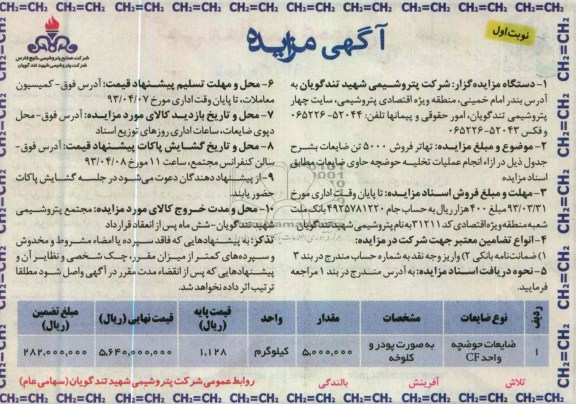 CH₂=CH₂ CH₂=CH₂ CH₂=CH₂ CH₂=CH₂ CH₂=CH₂ CH₂=CH₂ CH₂=CH₂
نوبت اول
آگهی مزایده
شرکت صنایع پتروشیمی خلیج فارس
شرکت پتروشیمی شهید تندگویان
۱- دستگاه مزایده‌گزار: شرکت پتروشیمی شهید تندگویان به
آدرس بندر امام خمینی، منطقه ویژه اقتصادی پتروشیمی، سایت چهار
پتروشیمی تندگویان، امور حقوقی و پیمانها تلفن: ۵۲۰۴۴-۰۶۵۲۲۶
و فکس ۵۲۰۴۳-۰۶۵۲۲۶
۲- موضوع و مبلغ مزایده: تهاتر فروش ۵۰۰۰ تن ضایعات بشرح
جدول ذیل در ازاء انجام عملیات تخلیه حوضچه حاوی ضایعات مطابق
اسناد مزایده
۳- مهلت و مبلغ فروش اسناد مزایده: تا پایان وقت اداری مورخ
۹۳/۰۳/۳۱ مبلغ ۴۰۰ هزار ریال به حساب جام ۴۹۲۵۷۸۱۲۲۰ بانک ملت
شعبه منطقه ویژه اقتصادی کد ۳۱۲۱۱ به نام پتروشیمی شهید تندگویان
۴- انواع تضامین معتبر جهت شرکت در مزایده:
۱) ضمانت نامه بانکی ۲) واریز وجه نقد به شماره حساب مندرج در بند ۳
۵- نحوه دریافت اسناد مزایده: به آدرس مندرج در بند ۱ مراجعه
فرمایید.
۶- محل و مهلت تسلیم پیشنهاد قیمت: آدرس فوق- کمیسیون
معاملات، تا پایان وقت اداری مورخ ۹۳/۰۴/۰۷
۷- محل و تاریخ بازدید کالای مورد مزایده: آدرس فوق- محل
دپوی ضایعات، ساعات اداری روزهای توزیع اسناد
۸- محل و تاریخ گشایش پاکات پیشنهاد قیمت: آدرس فوق-
سالن کنفرانس مجتمع، ساعت ۱۱ مورخ ۹۳/۰۴/۰۸
۹- از پیشنهاد دهندگان دعوت می‌شود در جلسه گشایش پاکات
حضور یابند
۱۰- محل و مدت خروج کالای مورد مزایده: مجتمع پتروشیمی
شهید تندگویان- شش ماه پس از انعقاد قرارداد
تذکر: به پیشنهادهایی که فاقد سپرده یا امضاء مشروط و مخدوش
و سپرده‌های کمتر از میزان مقرر، چک شخصی و نظایر آن و
پیشنهادهایی که پس از انقضاء مدت مقرر در آگهی واصل شود مطلقا
ترتیب اثر داده نخواهد شد.
ردیف نوع ضایعات مشخصات مقدار واحد قیمت پایه (ریال) قیمت نهایی (ریال) مبلغ تضمین (ریال)
۱ ضایعات حوضچه واحد CF به صورت پودر و کلوخه ۵,۰۰۰,۰۰۰ کیلوگرم ۱,۱۲۸ ۵,۶۴۰,۰۰۰,۰۰۰ ۲۸۲,۰۰۰,۰۰۰
تلاش آفرینش بالندگی روابط عمومی شرکت پتروشیمی شهید تندگویان (سهامی عام)
CH₂=CH₂ CH₂=CH₂ CH₂=CH₂ CH₂=CH₂ CH₂=CH₂ CH₂=CH₂ CH₂=CH₂